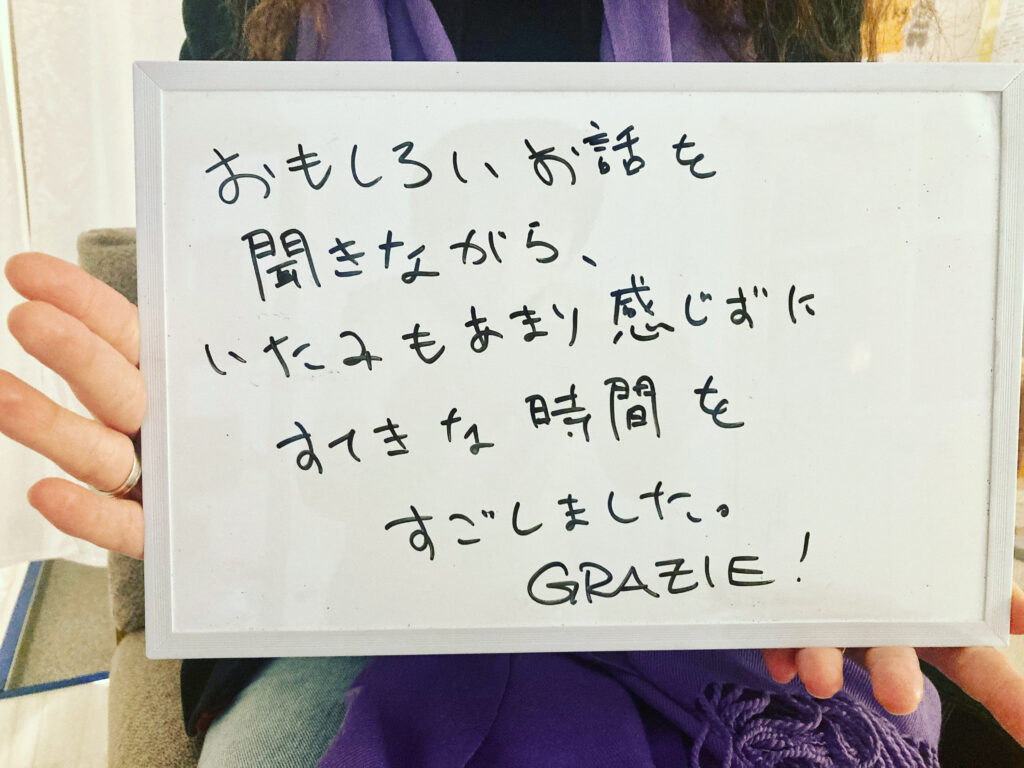 おもしろいお話を
聞きながら、
いたみもあまり感じずに
すてきな時間を
すごしました。
GRAZIE!